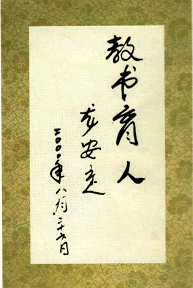 教书育人
龙安定
二〇〇〇年八月二十日